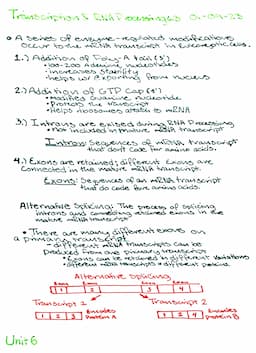 Transcription & RNA Processing
• A series of enzyme-regulated modifications
occur to the mRNA transcript in Eucaryotic cells.
1.) Addition of Poly-A tail (3')
• 100-200 Adenine nucleotides
• increases stability
• helps w/ exporting from nucleus
2.) Addition of GTP Cap (5')
• Modified Guanine nucleotide
• Protects the transcript
• Helps ribosomes attach to mRNA
3.) Introns are excised during RNA Processing
• not included in mature mRNA transcript
Intron: Sequences of mRNA transcript
that don't code for amino acids.
4.) Exons are retained; different exons are
connected in the mature mRNA transcript.
Exons: Sequences of an mRNA transcript
that do code for amino acids
Alternative Splicing: The process of splicing
introns and connecting retained exons in the
mature mRNA transcript
• There are many different exons on
a primary transcript
- different mRNA transcripts can be
produced from one primary transcript
• Exons can be retained in different variations
different mRNA transcripts → different proteins
Alternative Splicing
Exon Exon Exon Exon
1 2 3 4
Transcript 1 Transcript 2
1 2 3 Encodes Protein A 1 2 4 Encodes Protein B
Unit 6